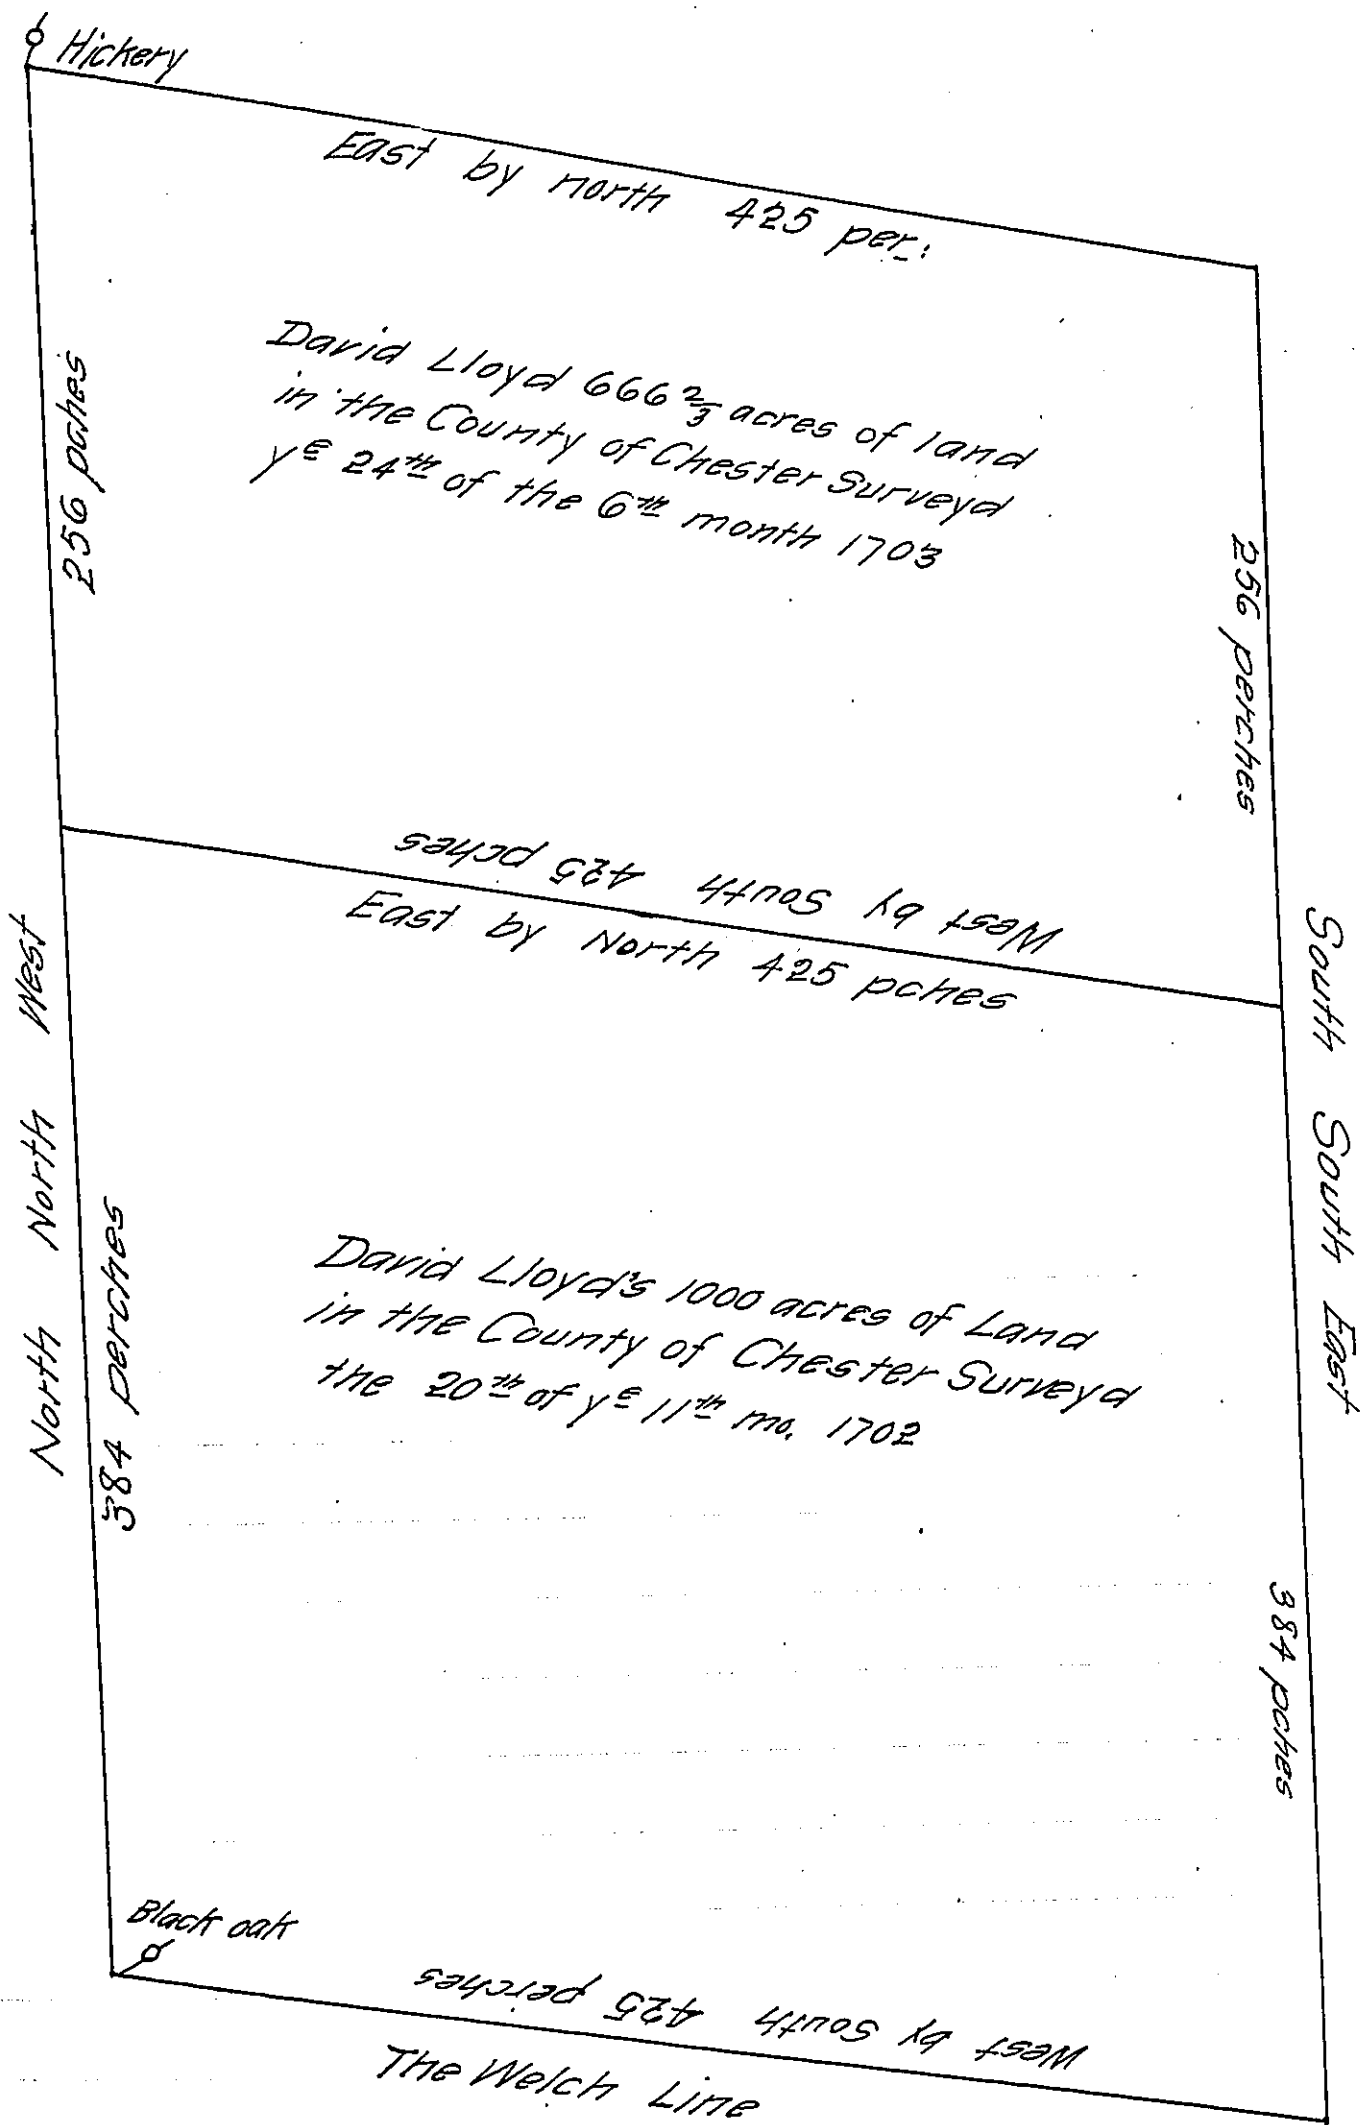 Hickery
East by north 425 per:
256 pches
David Lloyd 666 2/3 acres of land
in the County of Chester Surveyd
yᵉ 24th of the 6th month 1703
256 perches
West by South 425 pches
East by North 425 pches
North North West
South South East
384 perches
David Lloyd's 1000 acres of Land
in the County of Chester Surveyd
the 20th of yᵉ 11th mo. 1702
384 pches
Black oak
West by South 425 perches
The Welch Line